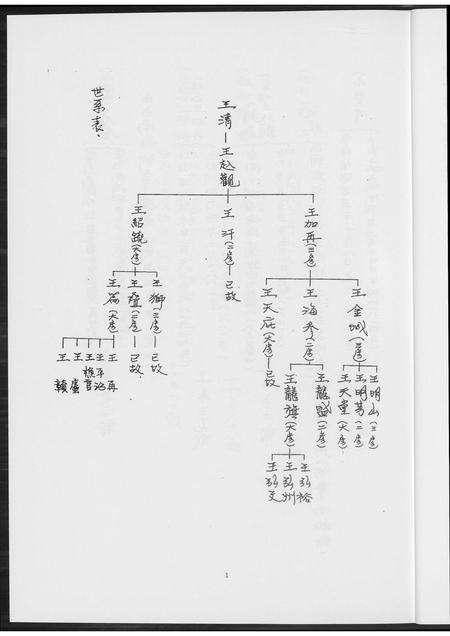 世系表、
王清
王赵觀
王紹
(大房)
王汗(二房)
已故
王加再(三房)
王 (大房)
王疊(二房)
已故、
王獅(三房)
已故
王天庇(大房)
已故
王海參(二房)
王金城(三房)
王龍旗(大房)
王龍 (二房)
王天堂(大房)
王明芳(二房)
王明山(三房)
王再
王
王
王
王
王弘文
王弘州
王弘裕
1